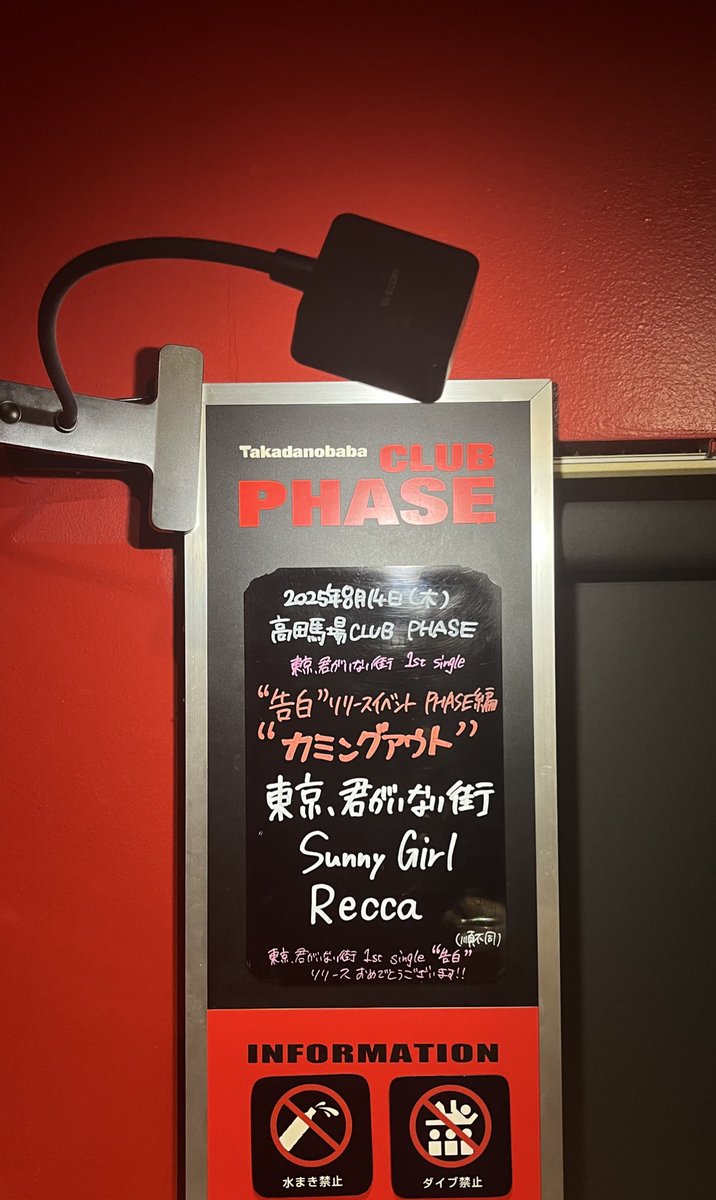 ELECOM
Takadanobaba CLUB
PHASE
2025年8月14日(木)
高田馬場CLUB PHASE
東京、君がいない街 1st single
“告白”リリースイベント PHASE編
“カミングアウト”
東京、君がいない街
Sunny Girl
Recca
(順不同)
東京、君がいない街 1st single “告白”
リリース おめでとうございます!!
INFORMATION
水まき禁止
ダイブ禁止